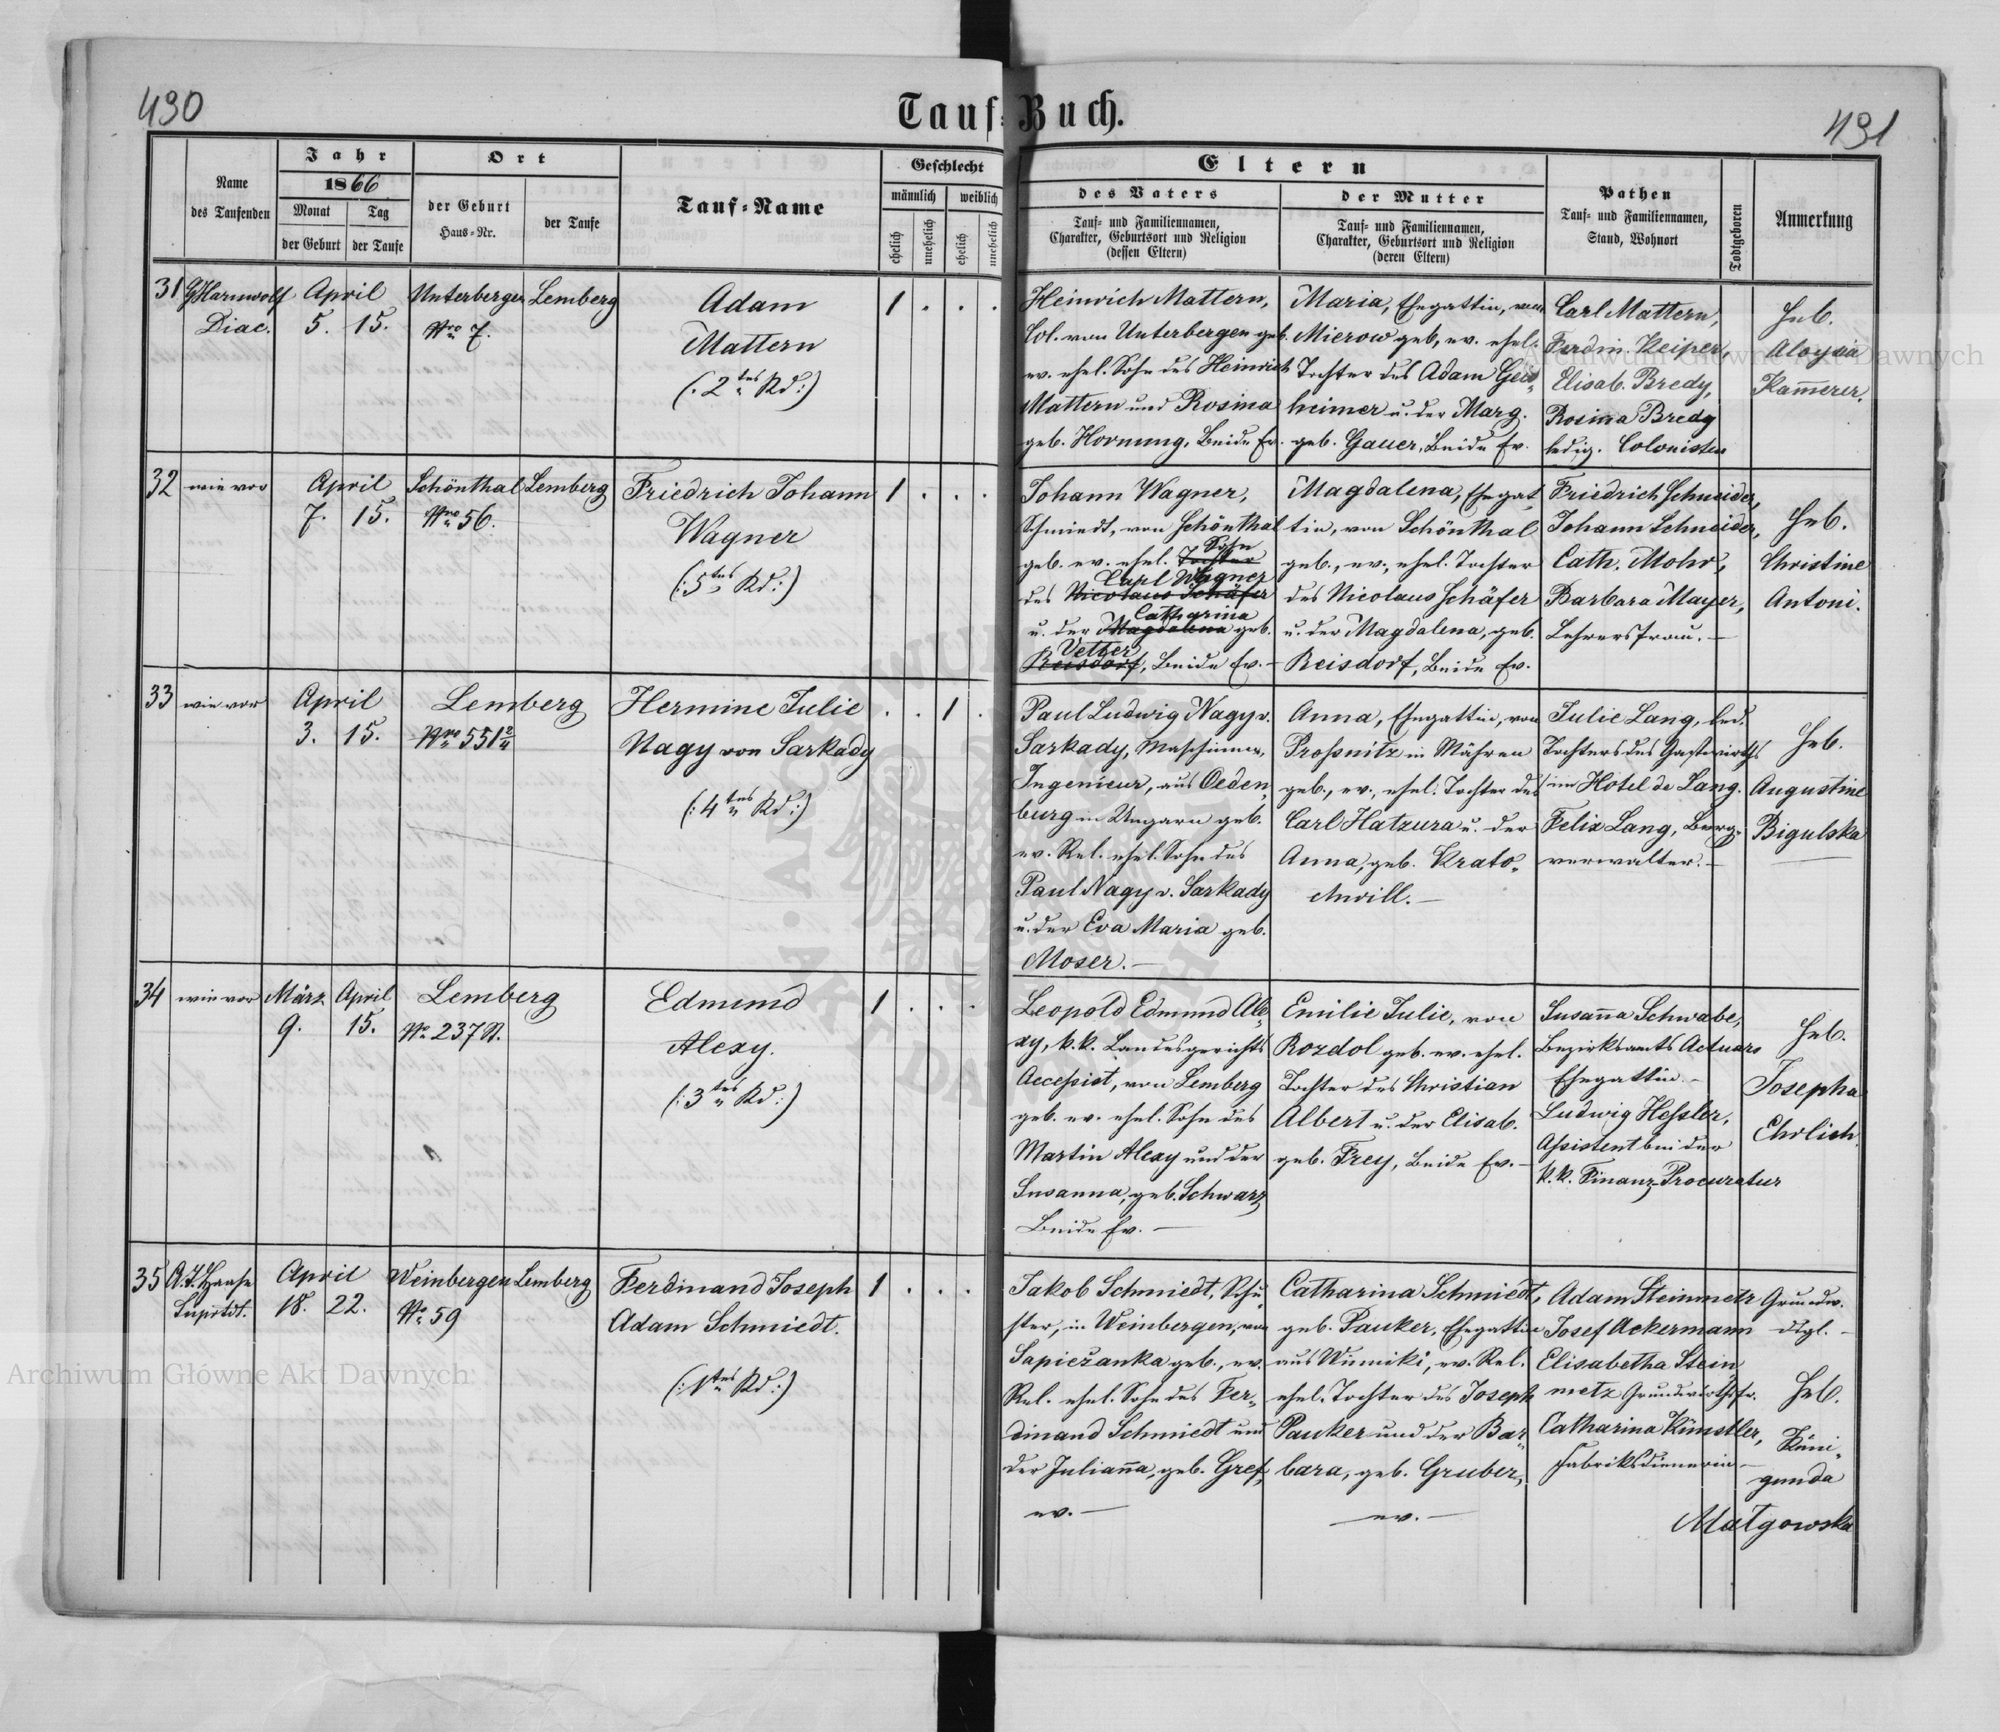 490
Tauf-Buch.
491
Name
des Taufenden
Jahr
1866
Monat
Tag
der Geburt
der Taufe
Ort
der Geburt
Haus-Nr.
der Taufe
Tauf-Name
Geschlecht
männlich
weiblich
ehelich
unehelich
ehelich
unehelich
Eltern
des Vaters
Tauf- und Familiennamen,
Charakter, Geburtsort und Religion
(dessen Eltern)
der Mutter
Tauf- und Familiennamen,
Charakter, Geburtsort und Religion
(deren Eltern)
Pathen
Tauf- und Familiennamen,
Stand, Wohnort
Todtgeboren
Anmerkung
31
Harnwolf
Diac.
April
5. 15.
Unterbergen
Nro 7.
Lemberg
Adam
Mattern
(:2tes Kd:)
1 . . .
Heinrich Mattern,
Col. von Unterbergen geb.
ev. ehel. Sohn des Heinrich
Mattern und Rosina
geb. Hornung, Beide Ev.
Maria, Ehegattin, von
Mierow geb, ev. ehel.
Tochter des Adam Geis-
heimer u. der Marg.
geb. Gauer, Beide Ev.
Carl Mattern,
Ferdin. Keiper,
Elisab. Bredy,
Rosina Bredy
ledig. Colonisten
Heb.
Aloysia
Kam̄erer.
32
wie vor
April
7. 15.
Schönthal
Nro 56.
Lemberg
Friedrich Johann
Wagner
(:5tes Kd:)
1 . . .
Johann Wagner,
Schmiedt, von Schönthal
geb. ev. ehel. Tochter Sohn
des Nicolaus Schäfer Carl Wagner
u. der Magdalena Catharina geb.
Reisdorf Vetzer, Beide Ev.-
Magdalena, Ehegat-
tin, von Schönthal
geb., ev., ehel. Tochter
des Nicolaus Schäfer
u. der Magdalena, geb.
Reisdorf, Beide Ev.
Friedrich Schneider,
Johann Schneider,
Cath. Mohr,
Barbara Mayer,
Lehrersfrau.-
Heb.
Christine
Antoni.
33
wie vor
April
3. 15.
Lemberg
Nro 551 2/4
Hermine Julie
Nagy von Sarkady
(:4tes Kd:)
. . 1 .
Paul Ludwig Nagy v.
Sarkady, Maschinen-
Ingenieur, aus Oeden-
burg in Ungarn geb.
ev. Rel. ehel. Sohn des
Paul Nagy v. Sarkady
u. der Eva Maria geb.
Moser.-
Anna, Ehegattin, von
Proßnitz in Mähren
geb., ev., ehel. Tochter des
Carl Hatzura u. der
Anna, geb. Krato-
chwill.-
Julie Lang, led.
Tochter des Gastwirths
im Hotel de Lang.
Felix Lang, Berg-
verwalter.-
Heb.
Augustine
Bigulska
34
wie vor
März April
9. 15.
Lemberg
No 237 St.
Edmund
Alexy.
(:3tes Kd:)
1 . . .
Leopold Edmund Ale-
xy, k.k. Landesgerichts
Accessist, von Lemberg
geb. ev. ehel. Sohn des
Martin Alexy und der
Susanna, geb. Schwarz
Beide Ev.-
Emilie Julie, von
Rozdol geb. ev. ehel.
Tochter des Christian
Albert u. der Elisab.
geb. Frey, Beide Ev.-
Susan̄a Schwabe,
Bezirksamts Actuars
Ehegattin.-
Ludwig Heßler,
Assistent bei der
k.k. Finanz-Procuratur
Heb.
Josepha
Ehrlich.
35
A. J. Haase
Suprtdt.
April
18. 22.
Weinbergen
No 59
Lemberg
Ferdinand Joseph
Adam Schmiedt.
(:1tes Kd:)
1 . . .
Jakob Schmiedt, Schu-
ster, in Weinbergen, von
Sapieżanka geb., ev.
Rel. ehel. Sohn des Fer-
dinand Schmiedt und
der Julian̄a, geb. Gref,
ev.-
Catharina Schmiedt,
geb. Pauker, Ehegattin
aus Winniki, ev. Rel.
ehel. Tochter des Joseph
Pauker und der Bar-
bara, geb. Gruber,
ev.-
Adam Steinmetz
Josef Ackermann
Elisabetha Stein-
metz Grundwirthsfr.
Catharina Künstler,
Fabriksdienerin-
Grundw.
dtgl.-
Heb.
Kuni-
gunda
Małgowska
Archiwum Główne Akt Dawnych
Archiwum Główne Akt Dawnych